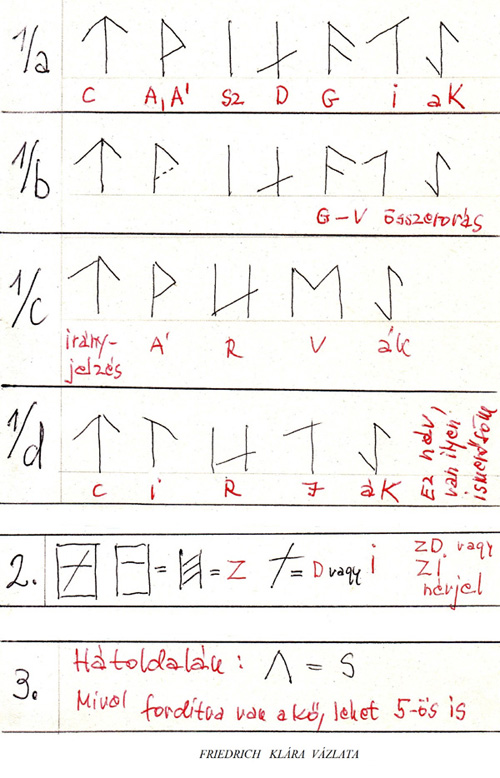 1/a
C A,Á SZ D G i aK
1/b
G-V összerovás
1/c
irány-
jelzés Á R V ák
1/d
C i R Z áK
Ez név,
van ilyen
ismerősöm
2. = = Z = D vagy i ZD vagy
Zi
névjel
3. Hátoldalán: Λ = S
Mivel fordítva van a kő, lehet 5-ös is
FRIEDRICH KLÁRA VÁZLATA